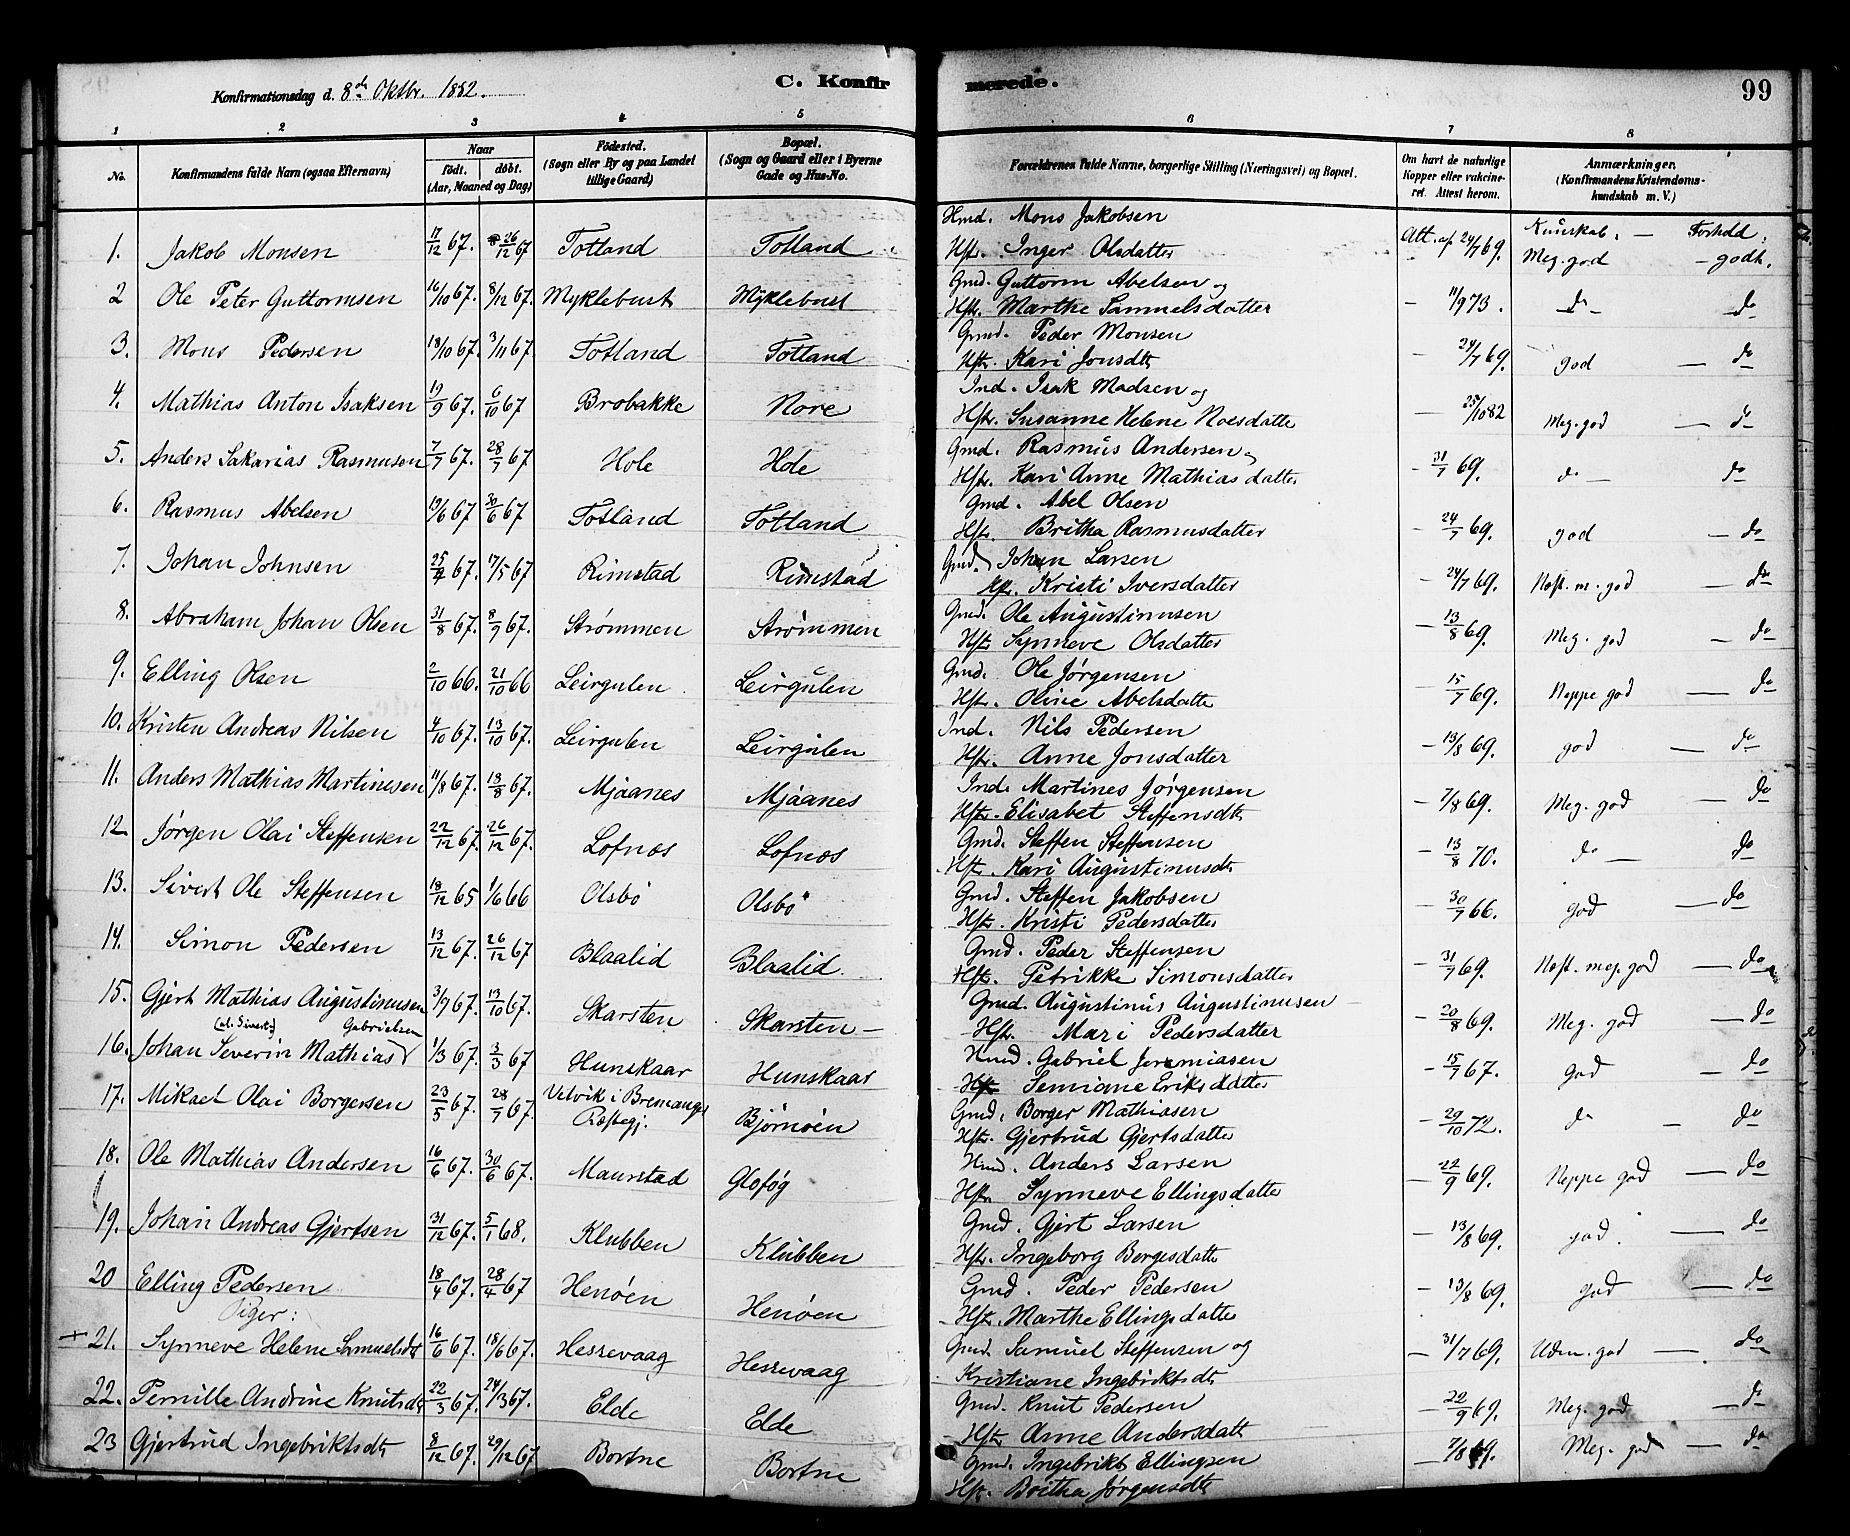 Konfirmationsdag d. 8de Oktbr. 1882. C. Konfirmerede. 99
1 2 3 4 5 6 7 8
No. Konfirmandens fulde Navn (ogsaa Efternavn) Naar født. døbt. (Aar, Maaned og Dag) Fødested. (Sogn eller By og paa Landet tillige Gaard) Bopæl. (Sogn og Gaard eller i Byerne Gade og Hus-No. Forældrenes fulde Navne, borgerlige Stilling (Næringsvei) og Bopæl. Om havt de naturlige Kopper eller vakcineret. Attest herom. Anmærkninger. (Konfirmandens Kristendomskundskab m. V.)
Kundskab. — Forhold.
1. Jakob Monsen 17/12 67. 26/12 67 Totland Totland Hmd. Mons Jakobsen
Hstr. Inger Olsdatter Att. af 24/7 69. Meg. god — godt.
2 Ole Peter Guttormsen 16/10 67. 8/12 67. Myklebust Myklebust Gmd. Guttorm Abelsen og
Hstr. Marthe Samuelsdatter — 11/9 73. do — do
3. Mons Pedersen 18/10 67. 3/11 67. Totland Totland Gmd. Peder Monsen
Hstr. Kari Jonsdtr — 24/7 69. god — do
4. Mathias Anton Isaksen 19/9 67. 6/10 67 Brobakke Nore Ind. Isak Madsen og
Hstr. Susanne Helene Noesdatter — 25/10 82 Meg. god — do
5. Anders Sakarias Rasmusen 7/7 67. 28/7 67 Hole Hole Gmd. Rasmus Andersen og
Hstr. Kari Anne Mathiasdatter — 31/7 69. do — do
6. Rasmus Abelsen 19/6 67 30/6 67 Totland Totland Gmd. Abel Olsen
Hstr. Britha Rasmusdatter — 24/7 69. god — do
7. Johan Johnsen 25/4 67. 17/5 67 Rimstad Rimstad Gmd. Johan Larsen
Hstr. Kristi Iversdatter — 24/7 69. Næst. m. god — do
8. Abraham Johan Olsen 31/8 67. 8/9 67. Strømmen Strømmen Gmd. Ole Augustinusen
Hstr. Synneve Olsdatter — 13/8 69. Meg. god — do
9. Elling Olsen 2/10 66. 21/10 66 Leirgulen Leirgulen Gmd. Ole Jørgensen
Hstr. Oline Abelsdatter — 15/7 69. Neppe god — do
10. Kristen Andreas Nilsen 4/10 67. 13/10 67. Leirgulen Leirgulen Ind. Nils Pedersen
Hstr. Anne Jonsdatter — 13/8 69. god — do
11. Anders Mathias Martinesen 11/8 67. 18/8 67. Mjaanes Mjaanes Ind. Martines Jørgensen
Hstr. Elisabet Steffensdtr — 7/8 69. Meg. god — do
12 Jørgen Olai Steffensen 22/12 67. 26/12 67. Lofnæs Lofnæs Gmd. Steffen Steffensen
Hstr. Kari Augustinusdtr — 13/8 70. do — do
13. Sivert Ole Steffensen 18/12 65 1/6 66 Olsbø Olsbø Gmd. Steffen Jakobsen
Hstr. Kristi Pedersdatter — 30/7 66. god — do
14. Simon Pedersen 13/12 67. 26/12 67 Blaalid Blaalid. Gmd. Peder Steffensen
Hstr. Petrikke Simonsdatter — 31/7 69. Næst. meg. god — do
15. Gjert Mathias Augustinusen 3/9 67. 13/10 67. Skarsten Skarsten — Gmd. Augustinus Augustinusen
Hstr. Mari Pedersdatter — 20/8 69. Meg. god — do
(al. Sivert) Gabrielsen
16. Johan Severin Mathias 1/3 67. 3/3 67 Hunskaar Hunskaar Hmd. Gabriel Jeremiasen
Hstr Semiane Eriksdatter — 15/7 67. god — do
17. Mikael Olai Borgersen 23/5 67. 28/7 67. Vetvik i Bremanger Præstegj. Bjørnøen Gmd. Borger Mathiasen
Hstr. Gjertrud Gjertsdatter — 29/10 72. do — do
18. Ole Mathias Andersen 16/6 67. 30/6 67. Maurstad Gloføg Hmd. Anders Larsen
Hstr. Synneve Ellingsdatter — 22/9 69. Neppe god — do
19. Johan Andreas Gjertsen 31/12 67. 5/1 68. Klubben Klubben Gmd. Gjert Larsen
Hstr. Ingeborg Bergesdatter — 13/8 69. god. — do
20 Elling Pedersen 18/4 67. 28/4 67 Henøen Henøen Gmd. Peder Pedersen
Hstr. Marthe Ellingsdatter — 13/8 69. god — do
Piger:
+ 21. Synneve Helene Samuelsdt 16/6 67. 18/6 67. Hessevaag Hessevaag Gmd. Samuel Steffensen og
Kristiane Ingebriktsdtr — 31/7 69. Udm. god — do
22. Pernille Andrine Knutsdt 22/3 67. 24/3 67. Elde Elde Gmd. Knut Pedersen
Hstr Anne Andersdatt — 22/9 69. Meg. god — do
23 Gjertrud Ingebriktsdtr 8/12 67. 29/12 67 Bortne Bortne Gmd. Ingebrikt Ellingsen
Hstr. Britha Jørgensdtr — 7/8 69. Meg. god — do